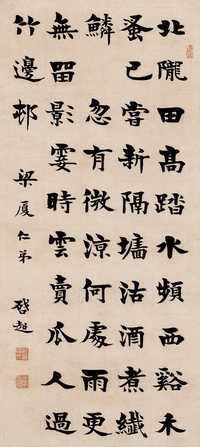 北隴田高踏水頻西谿禾
蚤已嘗新隔墻沽酒煮纖
鱗忽有微涼何處雨更
無留影霎時雲賣瓜人過
竹邊邨
梁廈仁弟
啓超